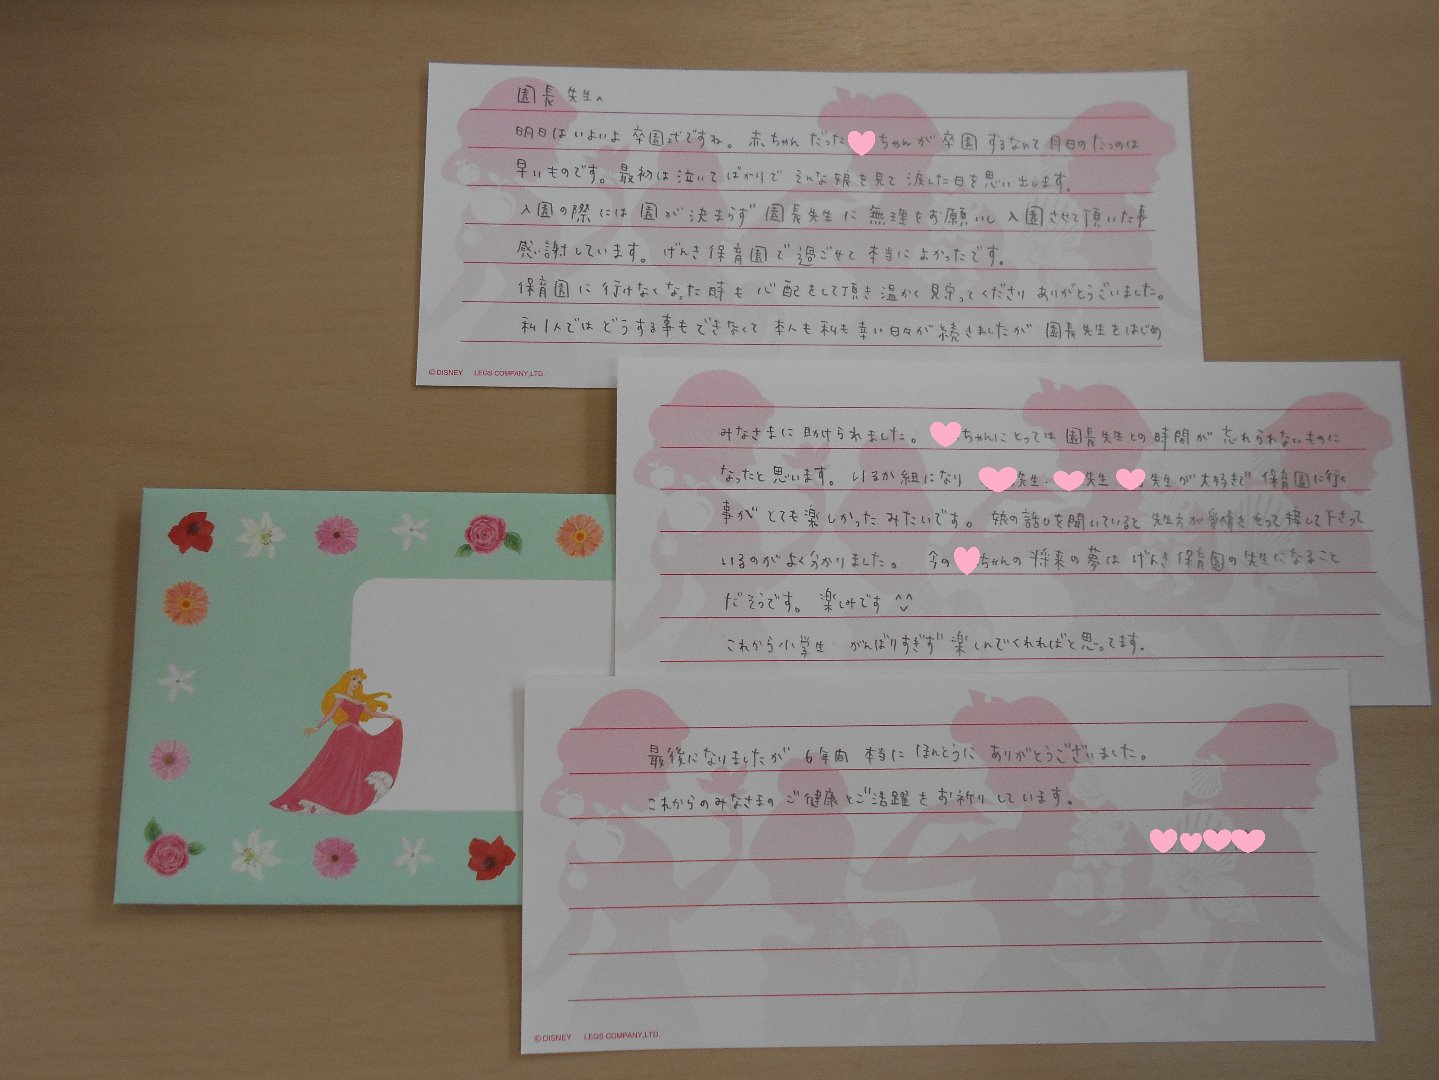 園長先生へ
明日はいよいよ卒園式ですね。赤ちゃんだった ちゃんが卒園するなんて月日のたつのは
早いものです。最初は泣いてばかりでそんな娘を見て涙した日を思い出します。
入園の際には園が決まらず園長先生に無理をお願いし入園させて頂いた事
感謝しています。げんき保育園で過ごせて本当によかったです。
保育園に行けなくなった時も心配をして頂き温かく見守ってくださりありがとうございました。
私1人ではどうする事もできなくて本人も私も辛い日々が続きましたが園長先生をはじめ
© DISNEY LEGS COMPANY,LTD.
みなさまに助けられました。 ちゃんにとっては園長先生との時間が忘れられないものに
なったと思います。いるか組になり 先生・ 先生・ 先生が大好きで保育園に行く
事がとても楽しかったみたいです。娘の話しを聞いていると先生方が愛情をもって接して下さって
いるのがよく分かりました。今の ちゃんの将来の夢はげんき保育園の先生になること
だそうです。楽しみです^^
これから小学生・がんばりすぎず楽しんでくれればと思ってます。
最後になりましたが6年間本当にほんとうにありがとうございました。
これからのみなさまのご健康とご活躍をお祈りしています。
© DISNEY LEGS COMPANY,LTD.